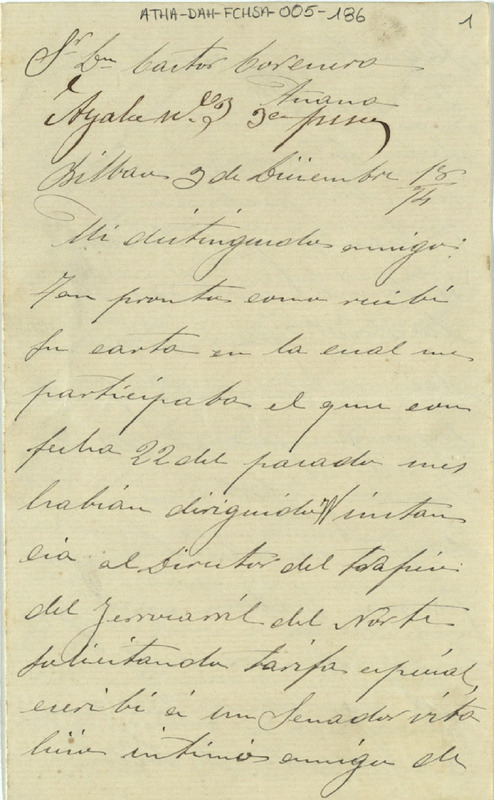 ATHA-DAH-FCHSA-005-186
1
Sr Dn Castor
Ayala nº
Bilbao 2 de Diciembre 18/94
Mi distinguido amigo:
Tan pronto como recibí
su carta en la cual me
participaba el que con
fecha 22 del pasado mes
habían dirigido instan
cia al Director del
del Ferrocarril del Norte
solicitando tarifa especial,
escribí á un Senador vita
licio intimo amigo de